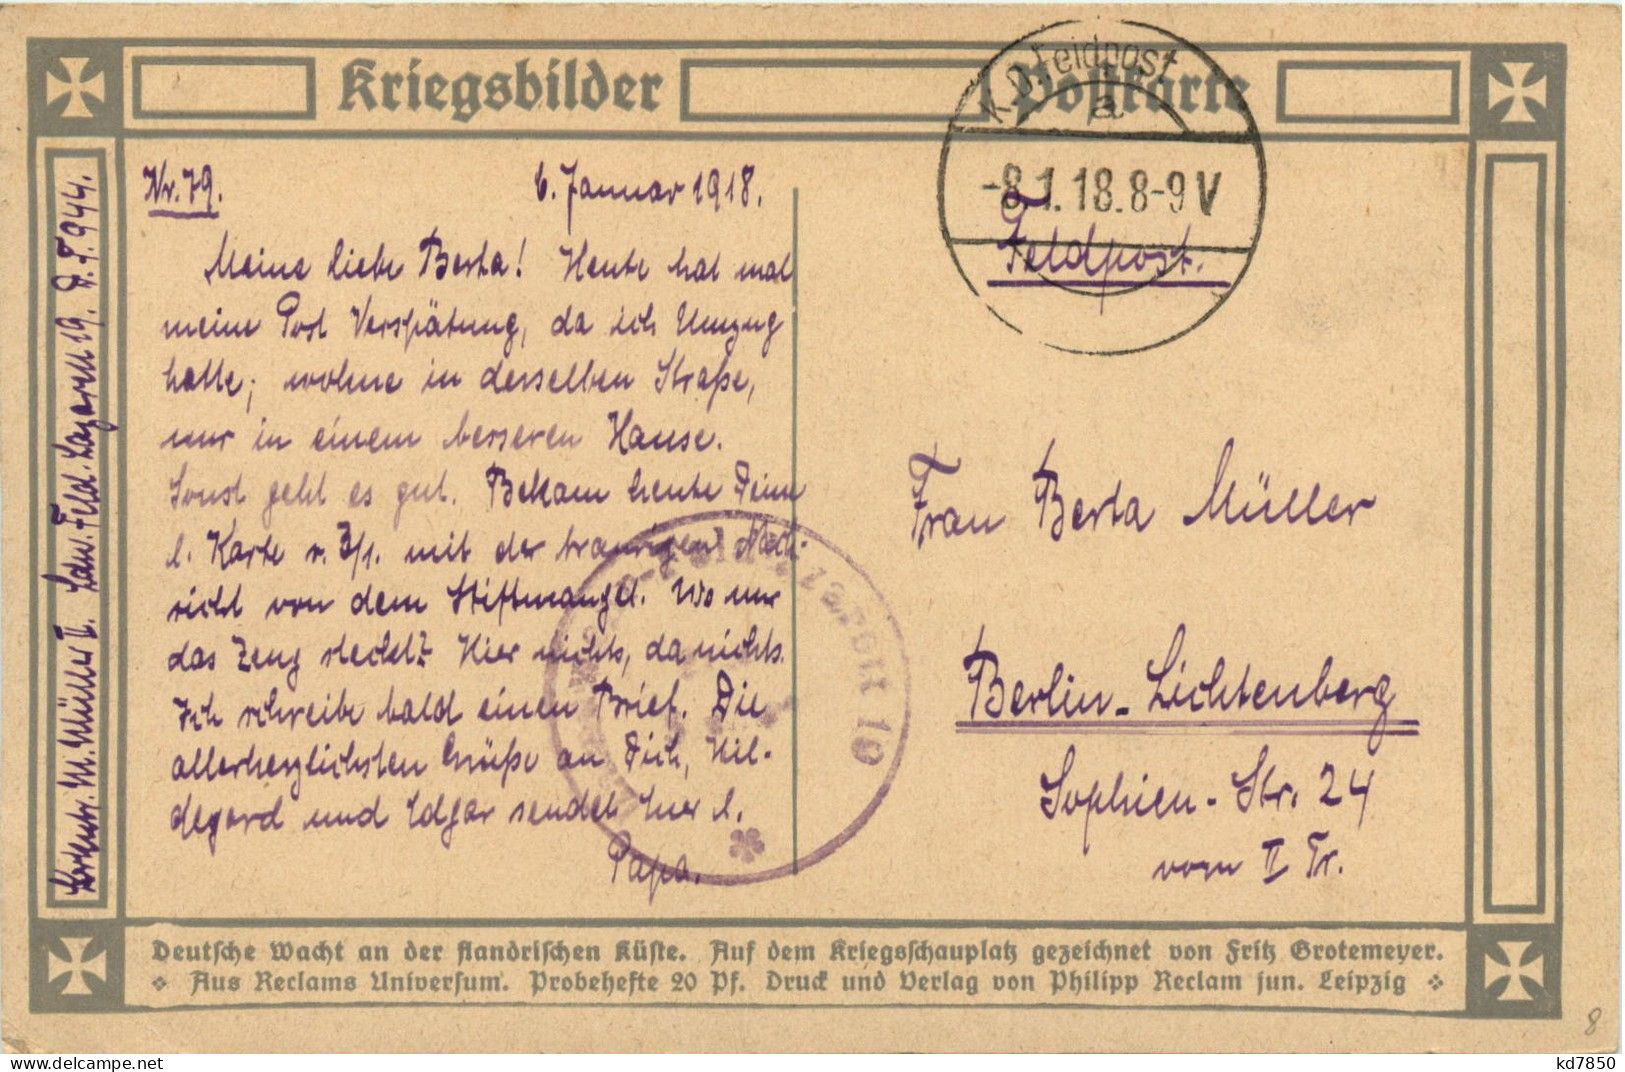 Kriegsbilder Postkarte
K.D. Feldpost
a
-8.1.18.8-9V
Feldpost.
Nr. 79. 6. Januar 1918.
Meine liebe Berta! Heute hat mal
meine Post Verspätung, da ich Umzug
hatte; wohne in derselben Straße,
nur in einem besseren Hause.
Sonst geht es gut. Bekam heute Deine
l. Karte v. 3/1. mit der traurigen Nach-
richt von dem Stiftmangel. Wo nur
das Zeug steckt? Hier nichts, da nichts.
Ich schreibe bald einen Brief. Die
allerherzlichsten Grüße an Dich, Hil-
degard und Edgar sendet Euer l.
Papa.
M. Müller II. Ldw. Feld-Lazarett 19. D.F.P. 944.
Frau Berta Müller
Berlin-Lichtenberg
Sophien-Str. 24
vorn II Tr.
lazarett 19
Deutsche Wacht an der flandrischen Küste. Auf dem Kriegsschauplatz gezeichnet von Fritz Grotemeyer.
Aus Reclams Universum. Probehefte 20 Pf. Druck und Verlag von Philipp Reclam jun. Leipzig
8
kd7850